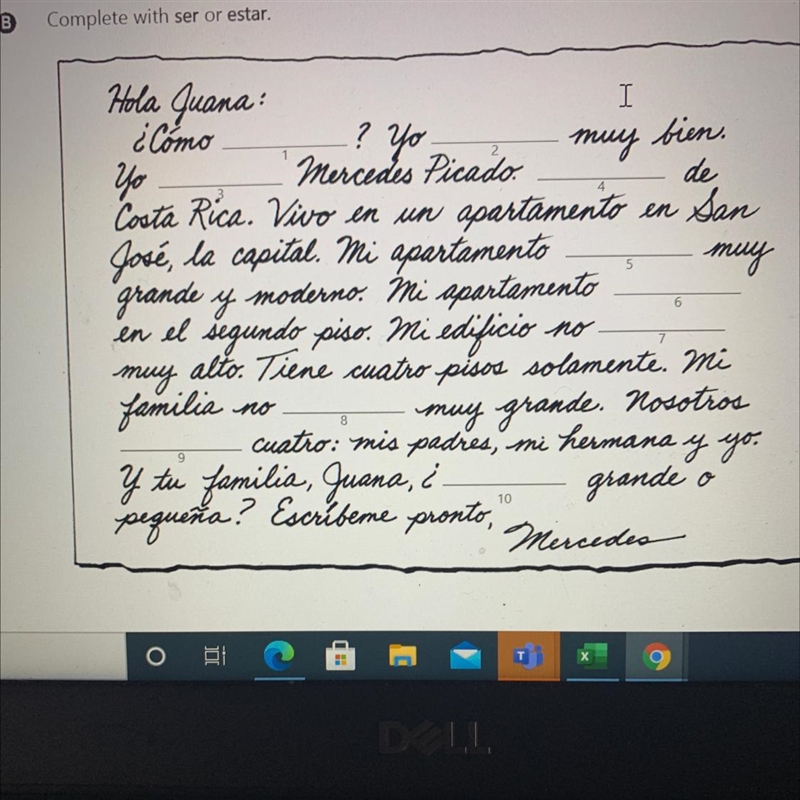 B Complete with ser or estar.
Hola Juana:
¿Cómo ____________? Yo ____________ muy bien.
1 2
Yo ____________ Mercedes Picado. ____________ de
3 4
Costa Rica. Vivo en un apartamento en San
José, la capital. Mi apartamento ____________ muy
5
grande y moderno. Mi apartamento ____________
6
en el segundo piso. Mi edificio no ____________
7
muy alto. Tiene cuatro pisos solamente. Mi
familia no ____________ muy grande. Nosotros
8
____________ cuatro: mis padres, mi hermana y yo.
9
Y tu familia, Juana, ¿____________ grande o
10
pequeña? Escríbeme pronto,
Mercedes
T X
DELL